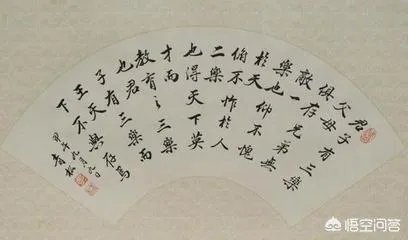 君子有三樂
父母
俱存兄弟無
故一
樂也仰不愧
於天
俯不怍於人
二樂
也得天下英
才而
教育之三樂
也君
子有三樂而
王天
下不與存焉
甲午九月九日
悟空问答